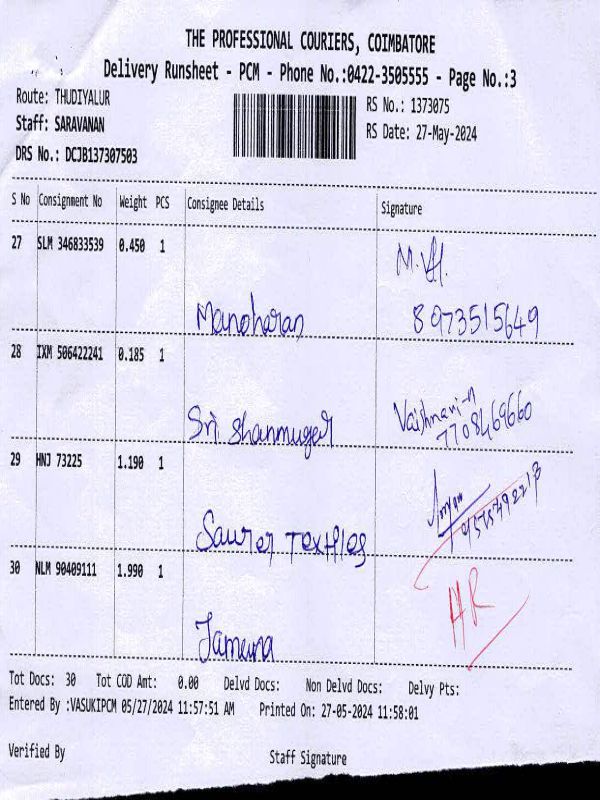 THE PROFESSIONAL COURIERS, COIMBATORE
Delivery Runsheet - PCM - Phone No.:0422-3505555 - Page No.:3
Route: THUDIYALUR
Staff: SARAVANAN
DRS No.: DCJB137307503
RS No.: 1373075
RS Date: 27-May-2024
S No Consignment No Weight PCS Consignee Details Signature
27 SLM 346833539 0.450 1
Manoharan 8973515649
28 IXM 506422241 0.185 1
Sri Shanmugar Vaishnavi-n
7708469660
29 HNJ 73225 1.190 1
30 NLM 90409111 1.990 1
HR
Jamuna
Tot Docs: 30 Tot COD Amt: 0.00 Delvd Docs: Non Delvd Docs: Delvy Pts:
Entered By :VASUKIPCM 05/27/2024 11:57:51 AM Printed On: 27-05-2024 11:58:01
Verified By Staff Signature